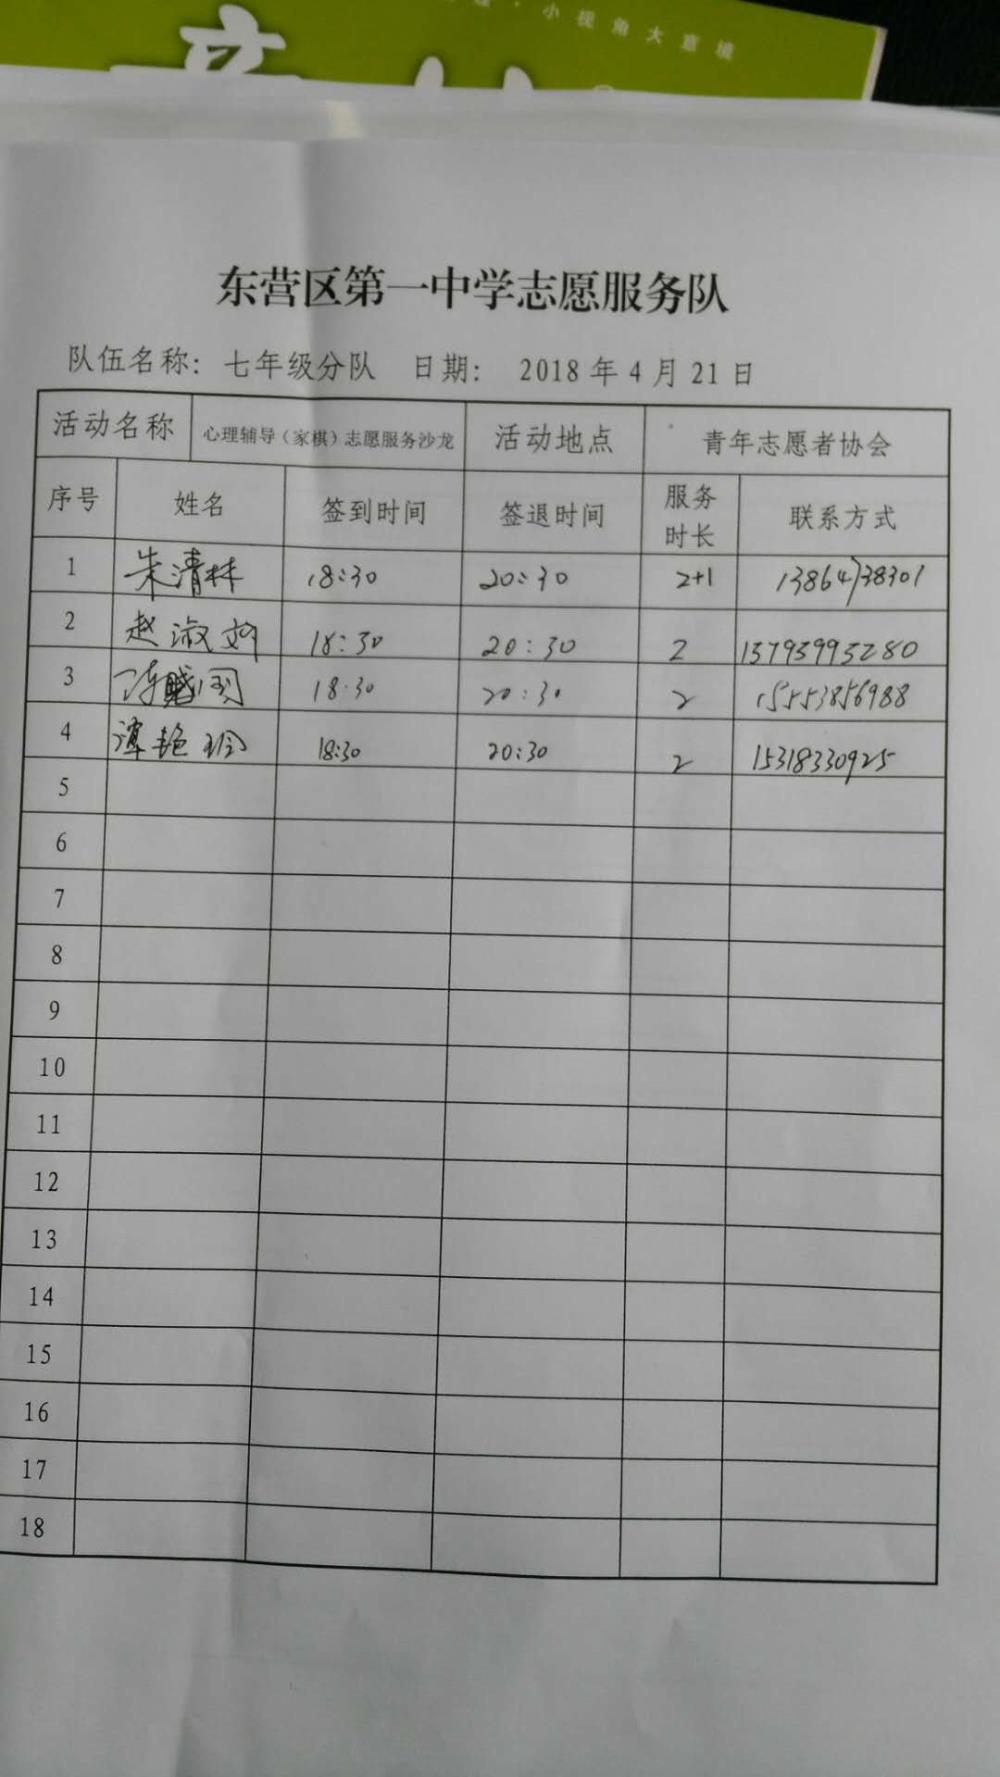 ·小视角大意境
东营区第一中学志愿服务队
队伍名称：七年级分队 日期： 2018年4月21日
活动名称 心理辅导（家棋）志愿服务沙龙 活动地点 青年志愿者协会
序号 姓名 签到时间 签退时间 服务时长 联系方式
1 朱清林 18:30 20:30 2+1 13864738301
2 赵淑 18:30 20:30 2 13793993280
3 18:30 20:30 2 15553856988
4 谭艳玲 18:30 20:30 2 15318330925
5
6
7
8
9
10
11
12
13
14
15
16
17
18